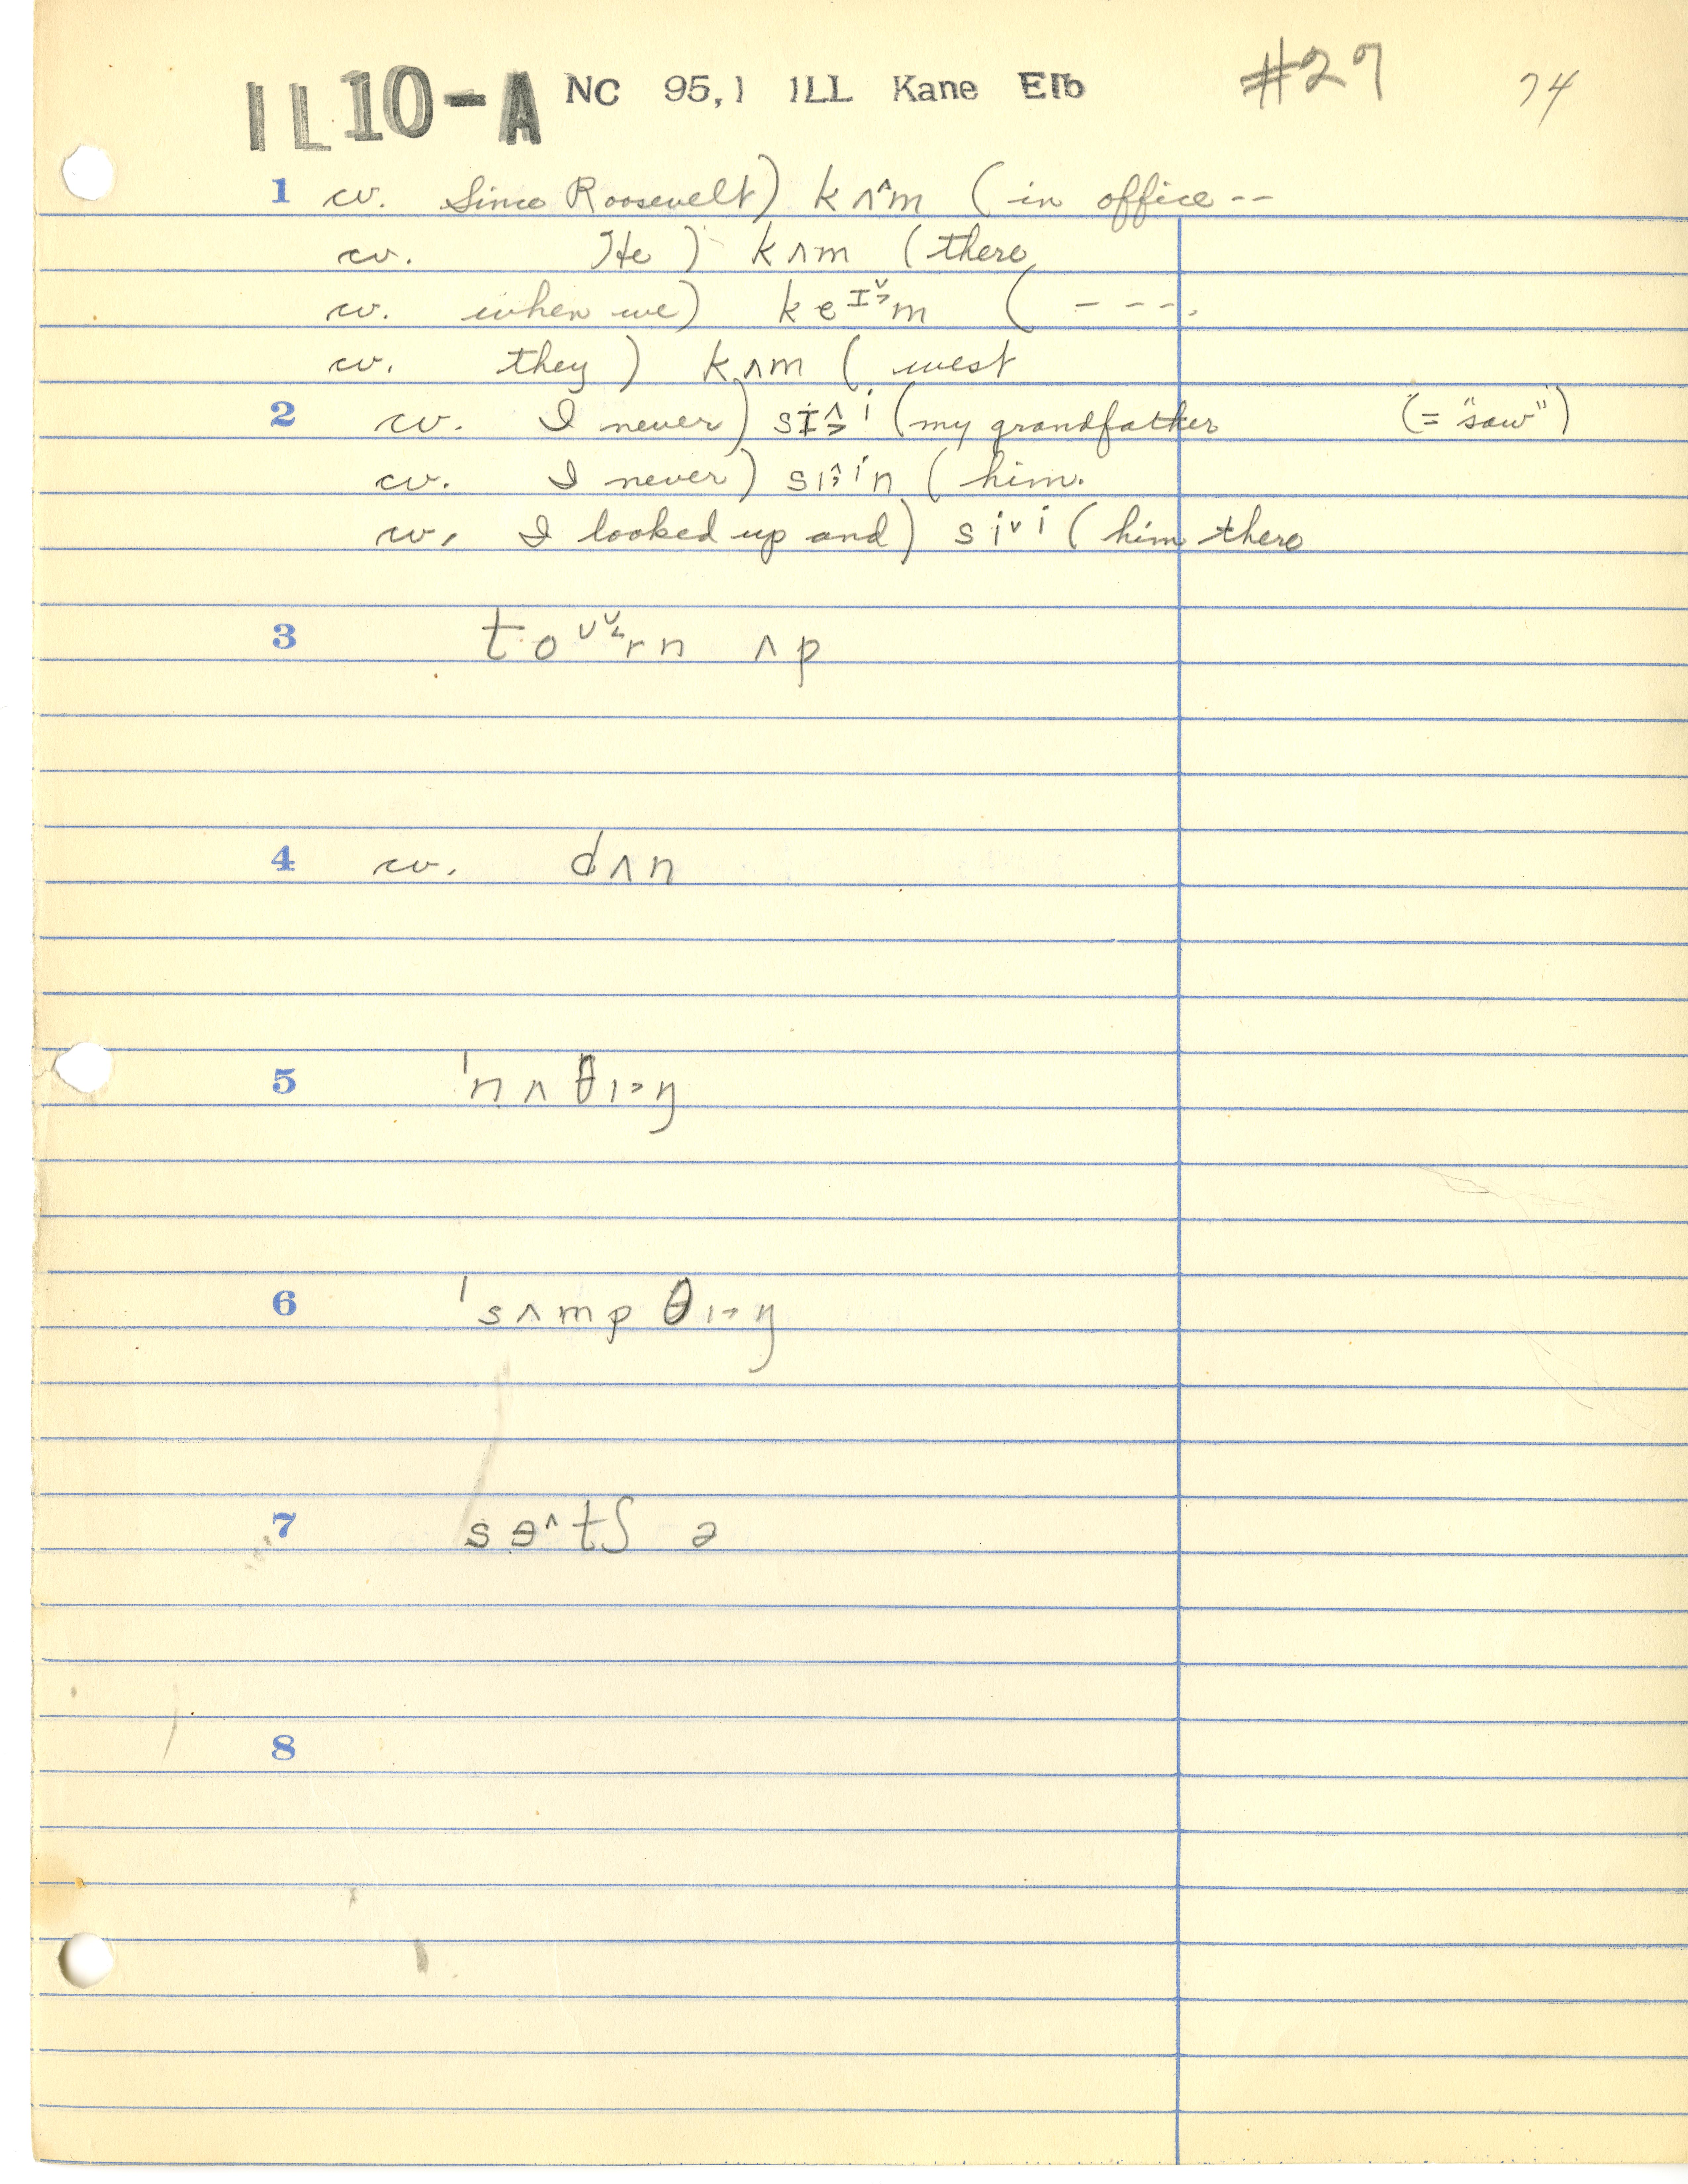 IL10-A NC 95,1 ILL Kane Elb #27 74
1 cv. Since Roosevelt) kʌ^m (in office --
cv. He) kʌm (there
cv. when we) keɪ˅˃m ( - - -.
cv. they) kʌm (west
2 cv. I never) sɪ^˃i (my grandfather (= "saw")
cv. I never) sɪ^˃in (him.
cv. I looked up and) si˅i (him there
3 toᴜ˅˂rn ʌp
4 cv. dʌn
5 'nʌθɪ˃ŋ
6 'sʌmpθɪ˃ŋ
7 sɘ^tʃ ə
8